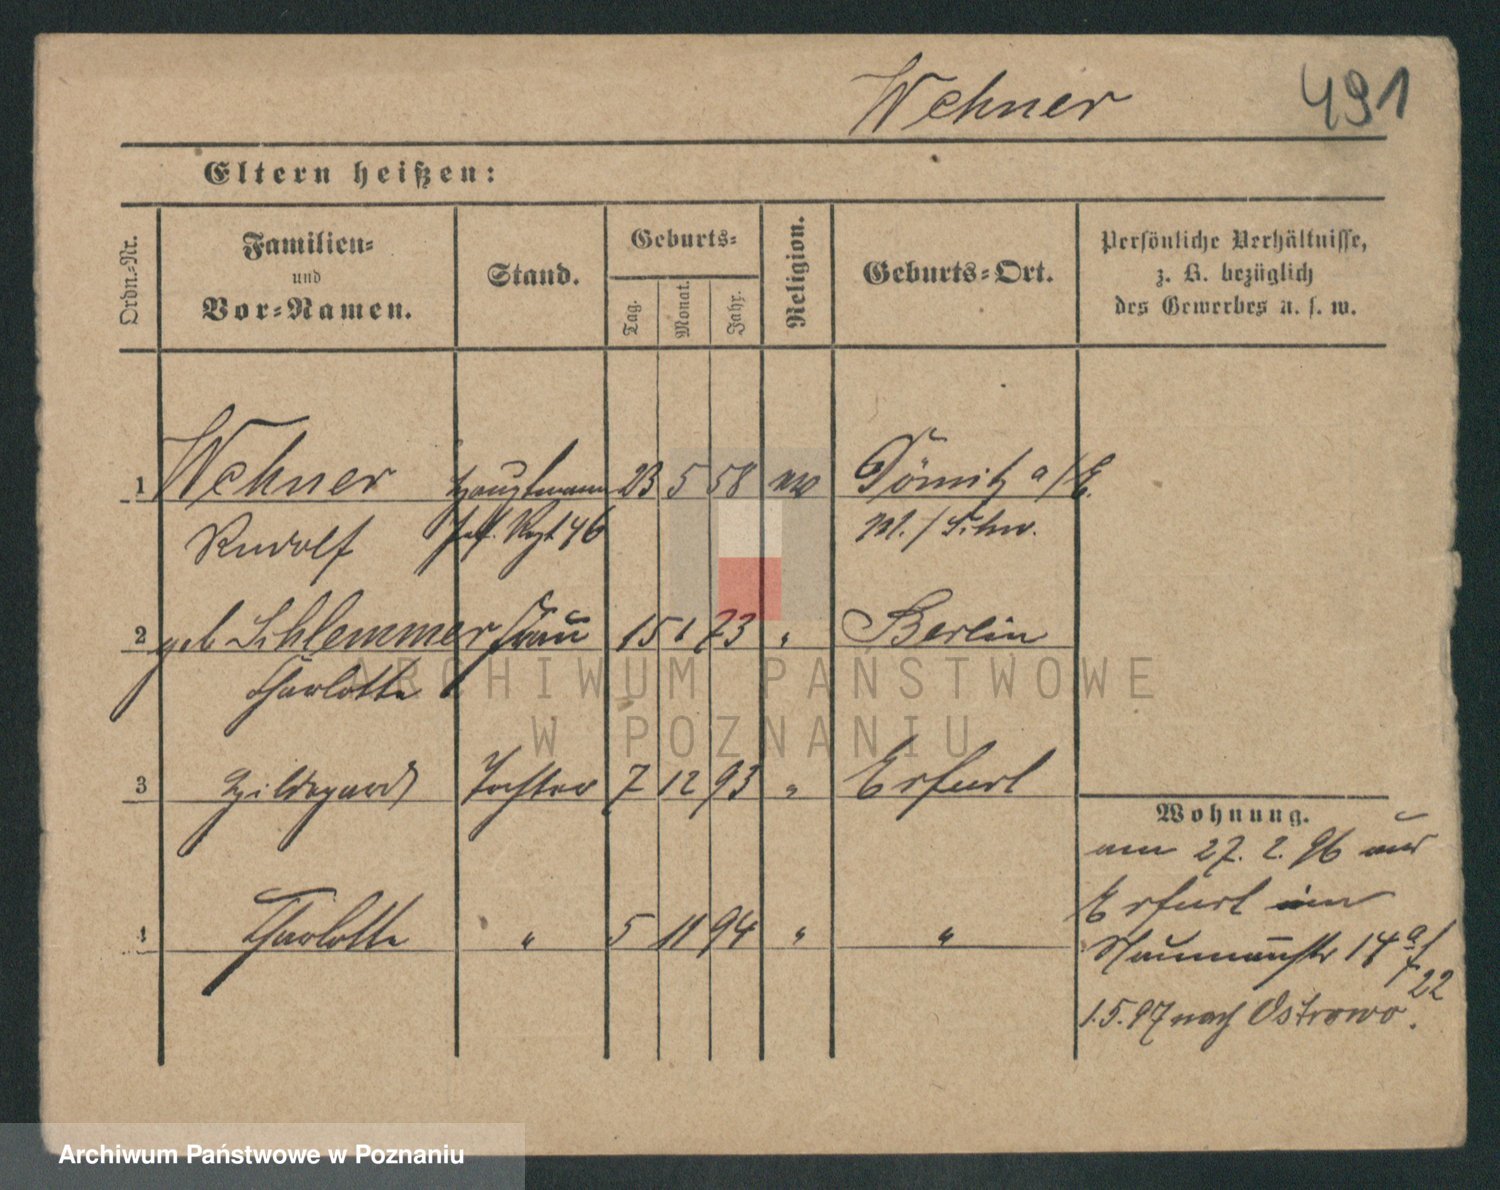 Wehner 491
Eltern heißen:
Ordn.-Nr.
Familien-
und
Vor-Namen.
Stand.
Geburts-
Tag.
Monat.
Jahr.
Religion.
Geburts-Ort.
Persönliche Verhältnisse,
z. B. bezüglich
des Gewerbes u. s. w.
1 Wehner Hauptmann 23 5 58 Dömitz a/E.
Rudolf Inf. Regt 46 M./Schw.
2 geb Schlemmer Frau 15 1 73 " Berlin
Charlotte
3 Hildegard Tochter 7 12 93 " Erfurt
Wohnung.
am 27. 2. 96 aus
Erfurt
4 Charlotte " 5 11 94 " "
Naumannstr 14 a/
22
1.5.97 nach Ostrowo.
ARCHIWUM PAŃSTWOWE
W POZNANIU
Archiwum Państwowe w Poznaniu